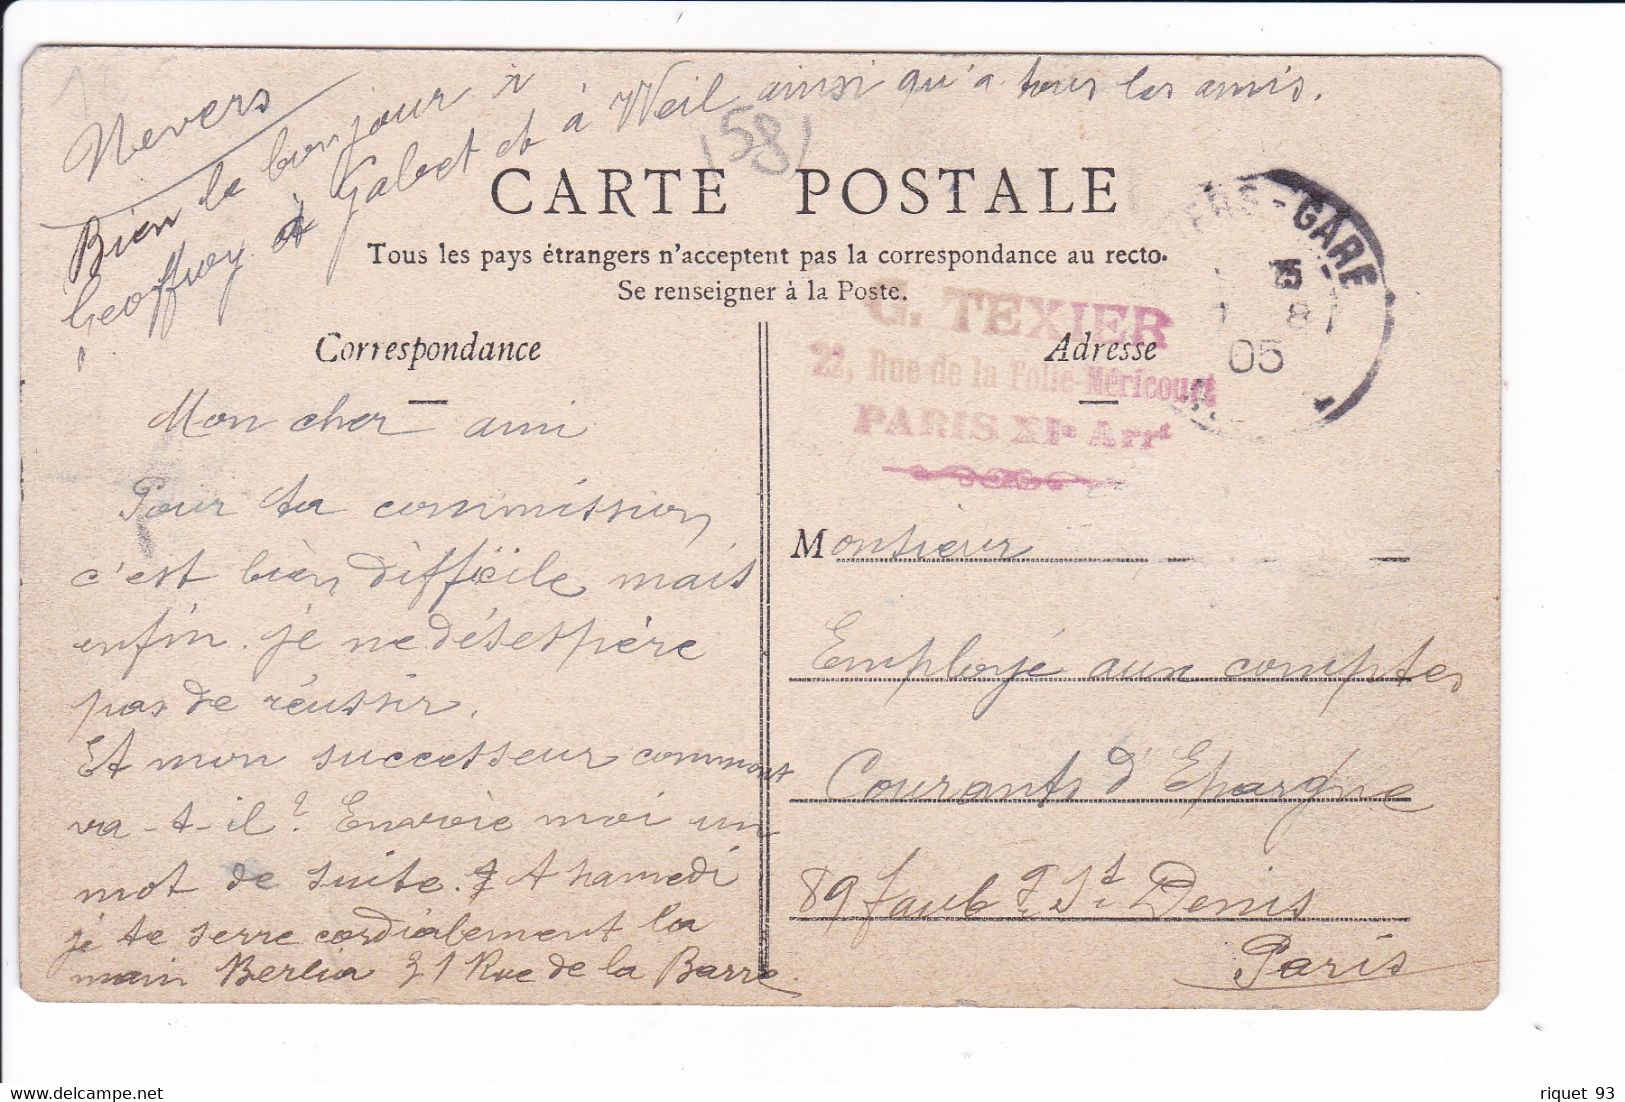 Nevers
Bien le bonjour à
Geoffroy à Gabet et à Weil ainsi qu'a tous les amis.
(58)
CARTE POSTALE
Tous les pays étrangers n'acceptent pas la correspondance au recto.
Se renseigner à la Poste.
Correspondance
Adresse
G. TEXIER
22, Rue de la Folie-Méricourt
PARIS XIe Arrt
ERS-GARE
8
05
Mon cher ami
Pour ta commission
c'est bien difficile mais
enfin je ne désespère
pas de réussir.
Et mon successeur comment
va-t-il? Envoie moi un
mot de suite. A samedi
je te serre cordialement la
main Berlia 31 Rue de la Barre
Monsieur
Employé aux comptes
Courants d'Epargne
89 Faubg St Denis
Paris
delcampe.net
riquet 93